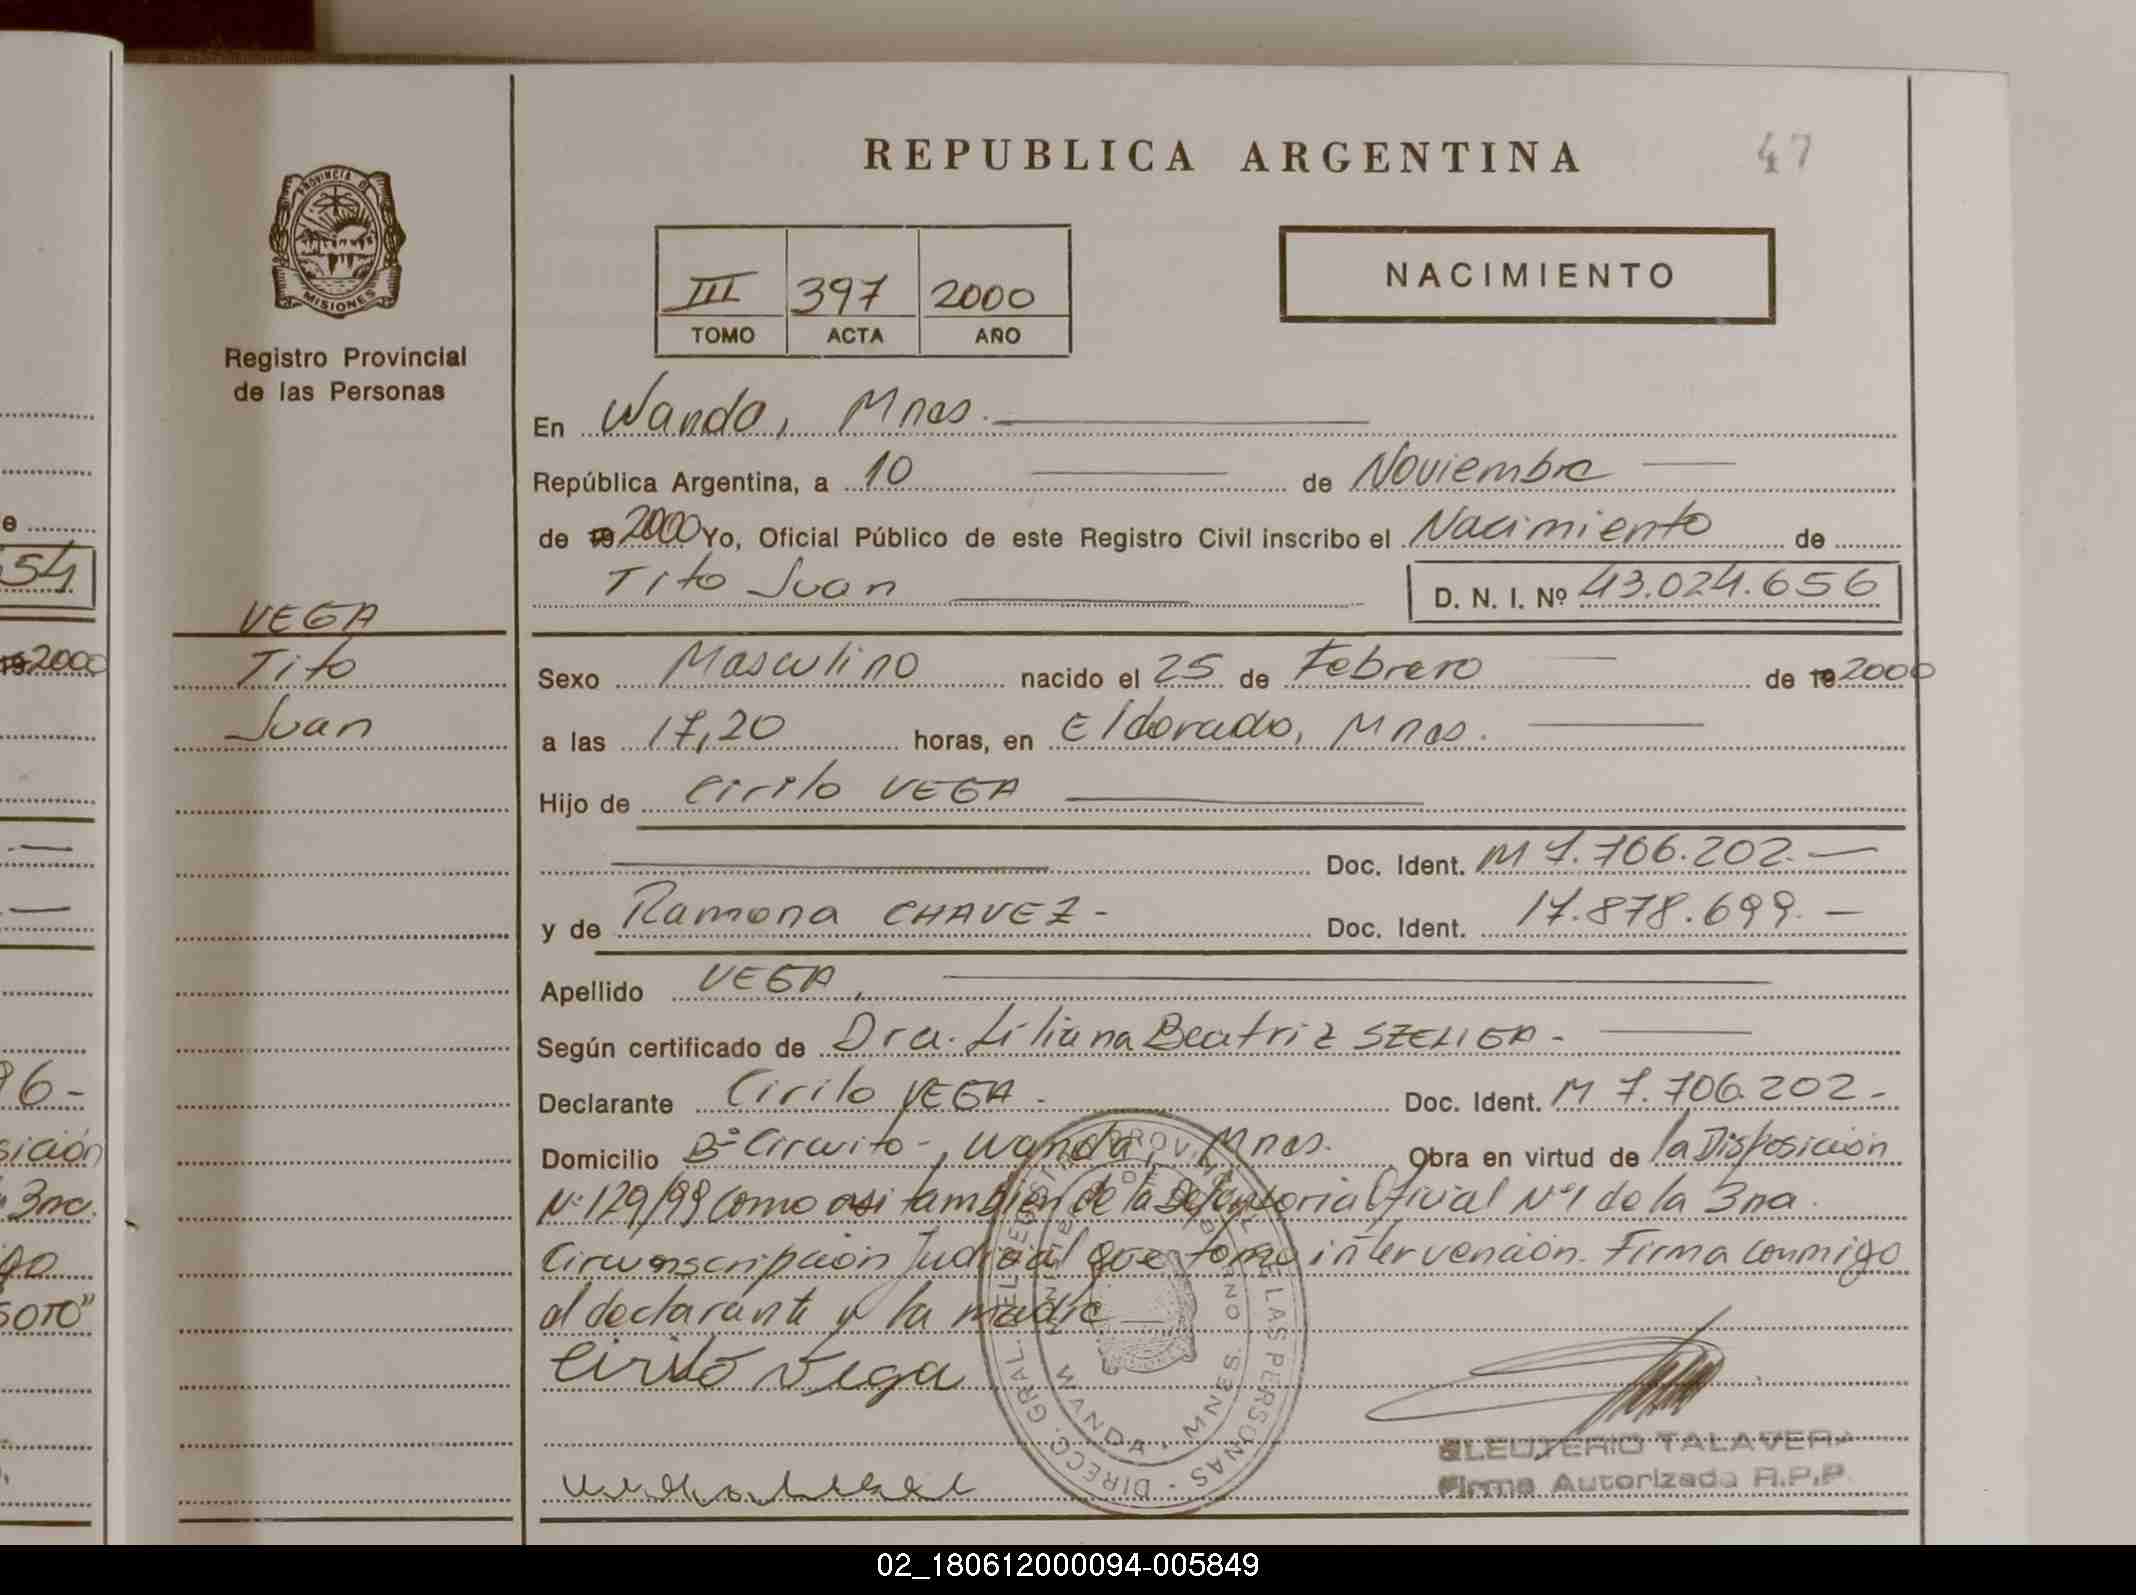 REPUBLICA ARGENTINA
47
PROVINCIA DE
MISIONES
Registro Provincial
de las Personas
III 397 2000
TOMO ACTA AÑO
NACIMIENTO
En Wanda, Mnes.
República Argentina, a 10 de Noviembre
de 19 2000 Yo, Oficial Público de este Registro Civil inscribo el Nacimiento de
Tito Juan D. N. I. Nº 43.024.656
VEGA
Tito
Juan
Sexo Masculino nacido el 25 de Febrero de 19 2000
a las 17,20 horas, en Eldorado, Mnes.
Hijo de Cirilo VEGA
Doc. Ident. M 7.706.202.-
y de Ramona CHAVEZ - Doc. Ident. 17.878.699.-
Apellido VEGA.
Según certificado de Dra. Liliana Beatriz SZELIGA -
Declarante Cirilo VEGA - Doc. Ident. M 7.706.202.-
Domicilio Bº Circuito -, Wanda, Mnes. Obra en virtud de la Disposición
Nº 129/99 como asi tambien de la Defensoria Oficial Nº 1 de la 3ra.
Circunscripción Judicial que tomo intervención. Firma conmigo
el declarante y la madre
Cirilo Vega
DIRECC. GRAL. DEL REGISTRO PROV. DE LAS PERSONAS
WANDA - MNES.
ELEUTERIO TALAVERA
Firma Autorizada R.P.P.
e
54
19 2000
96-
sición
3ra.
go
SOTO"
02_180612000094-005849